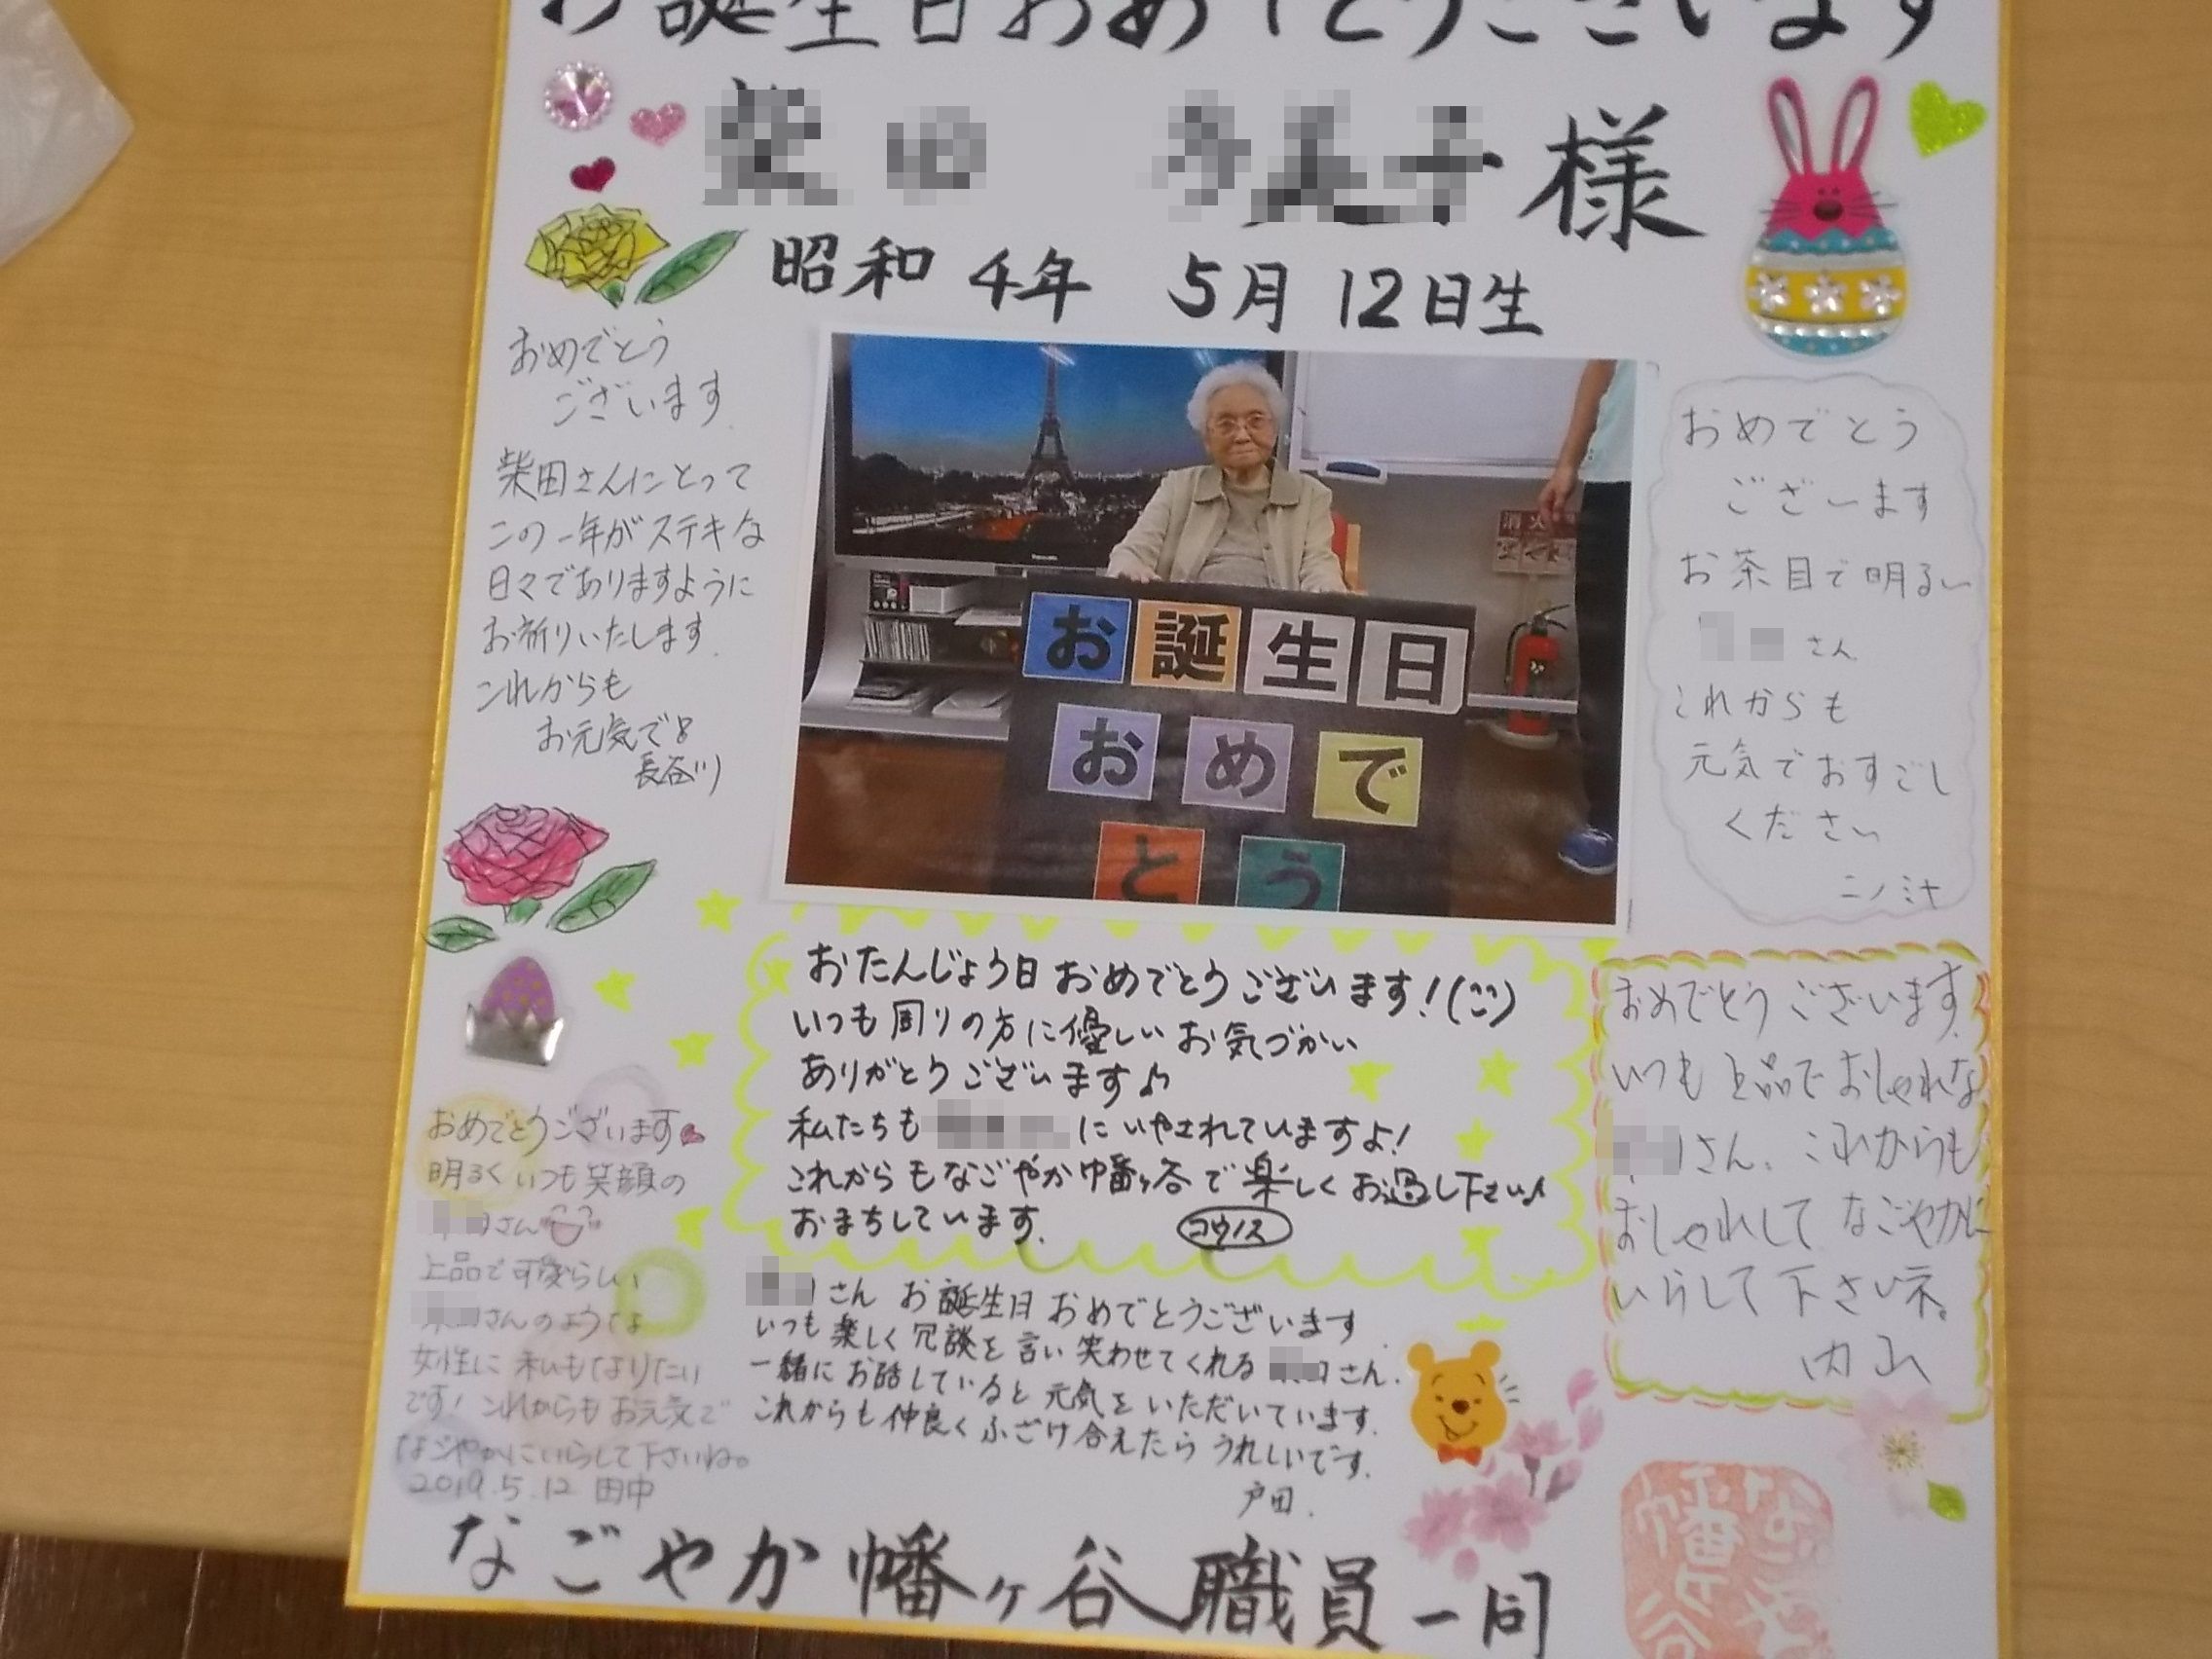 お誕生日おめでとうございます
様
昭和4年 5月12日生
おめでとう
ございます
柴田さんにとって
この一年がステキな
日々でありますように
お祈りいたします
これからも
お元気で
長谷川
お誕生日
おめで
とう
おめでとう
ございます
お茶目で明るい
さん
これからも
元気でおすごし
ください
おたんじょう日おめでとうございます!
いつも周りの方に優しいお気づかい
ありがとうございます♪
私たちも
にいやされていますよ!
これからもなごやか幡ヶ谷で楽しくお過し下さい♪
おまちしています.
コウノス
おめでとうございます.
いつも上品でおしゃれな
さん、これからも
おしゃれして なごやかに
いらして下さいネ。
内山
おめでとうございます
明るくいつも笑顔の
さん
上品で可愛らしい
さんのような
女性に私もなりたい
です!これからもお元気で
なごやかにいらして下さいね。
2019.5.12 田中
さん お誕生日おめでとうございます
いつも楽しく冗談を言い笑わせてくれる
さん.
一緒にお話していると元気をいただいています.
これからも仲良くふざけ合えたらうれしいです.
戸田.
なごやか幡ヶ谷職員一同